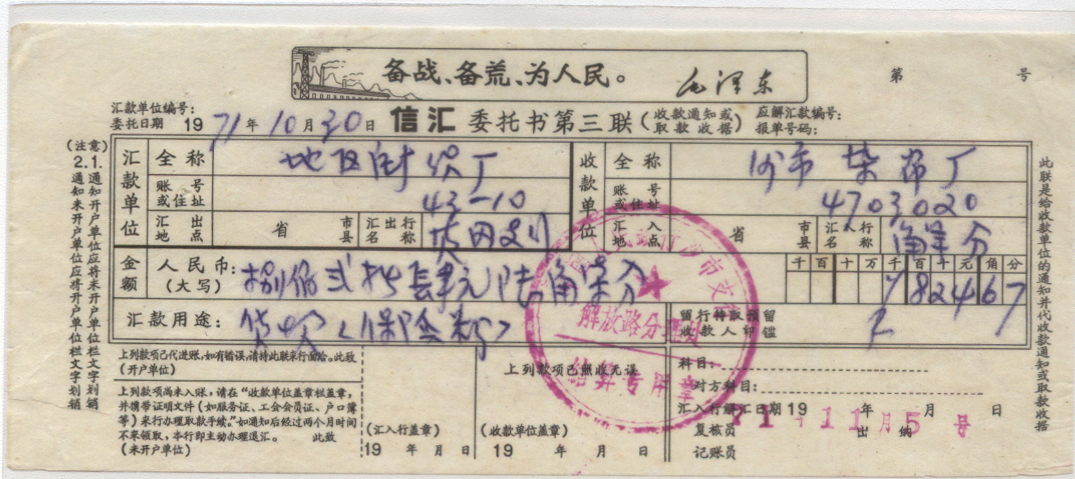 备战、备荒、为人民。 毛泽东
第 号
汇款单位编号:
委托日期 1971年10月30日
信汇 委托书第三联(收款通知或取款收据)
应解汇款编号:
报单号码:
(注意)
1.通知开户单位应将未开户单位栏文字划销
2.通知未开户单位应将开户单位栏文字划销
汇款单位
全称 地区 厂
账号或住址 43-10
汇出地点 省 市县 汇出行名称
收款单位
全称 沙市 布厂
账号或住址 4703020
汇入地点 省 市县 汇入行名称 分
金额 人民币:(大写) 捌佰贰拾 元陆角柒分
千百十万千百十元角分
82467
汇款用途: 货款
留行待取预留收款人印鉴
沙市支行
解放路分理处
结算专用章
上列款项已代进账,如有错误,请持此联来行面洽。此致
(开户单位)
上列款项尚未入账,请在“收款单位盖章栏盖章,
并携带证明文件(如服务证、工会会员证、户口簿
等)来行办理取款手续。”如通知后经过两个月时间
不来领取,本行即主动办理退汇。 此致
(未开户单位)
(汇入行盖章)
19 年 月 日
上列款项已照收无误
(收款单位盖章)
19 年 月 日
科目:
对方科目:
汇入行解汇日期 19 年 月 日
71 11月5号
复核员 出纳
记账员
此联是给收款单位的通知并代收款通知或取款收据